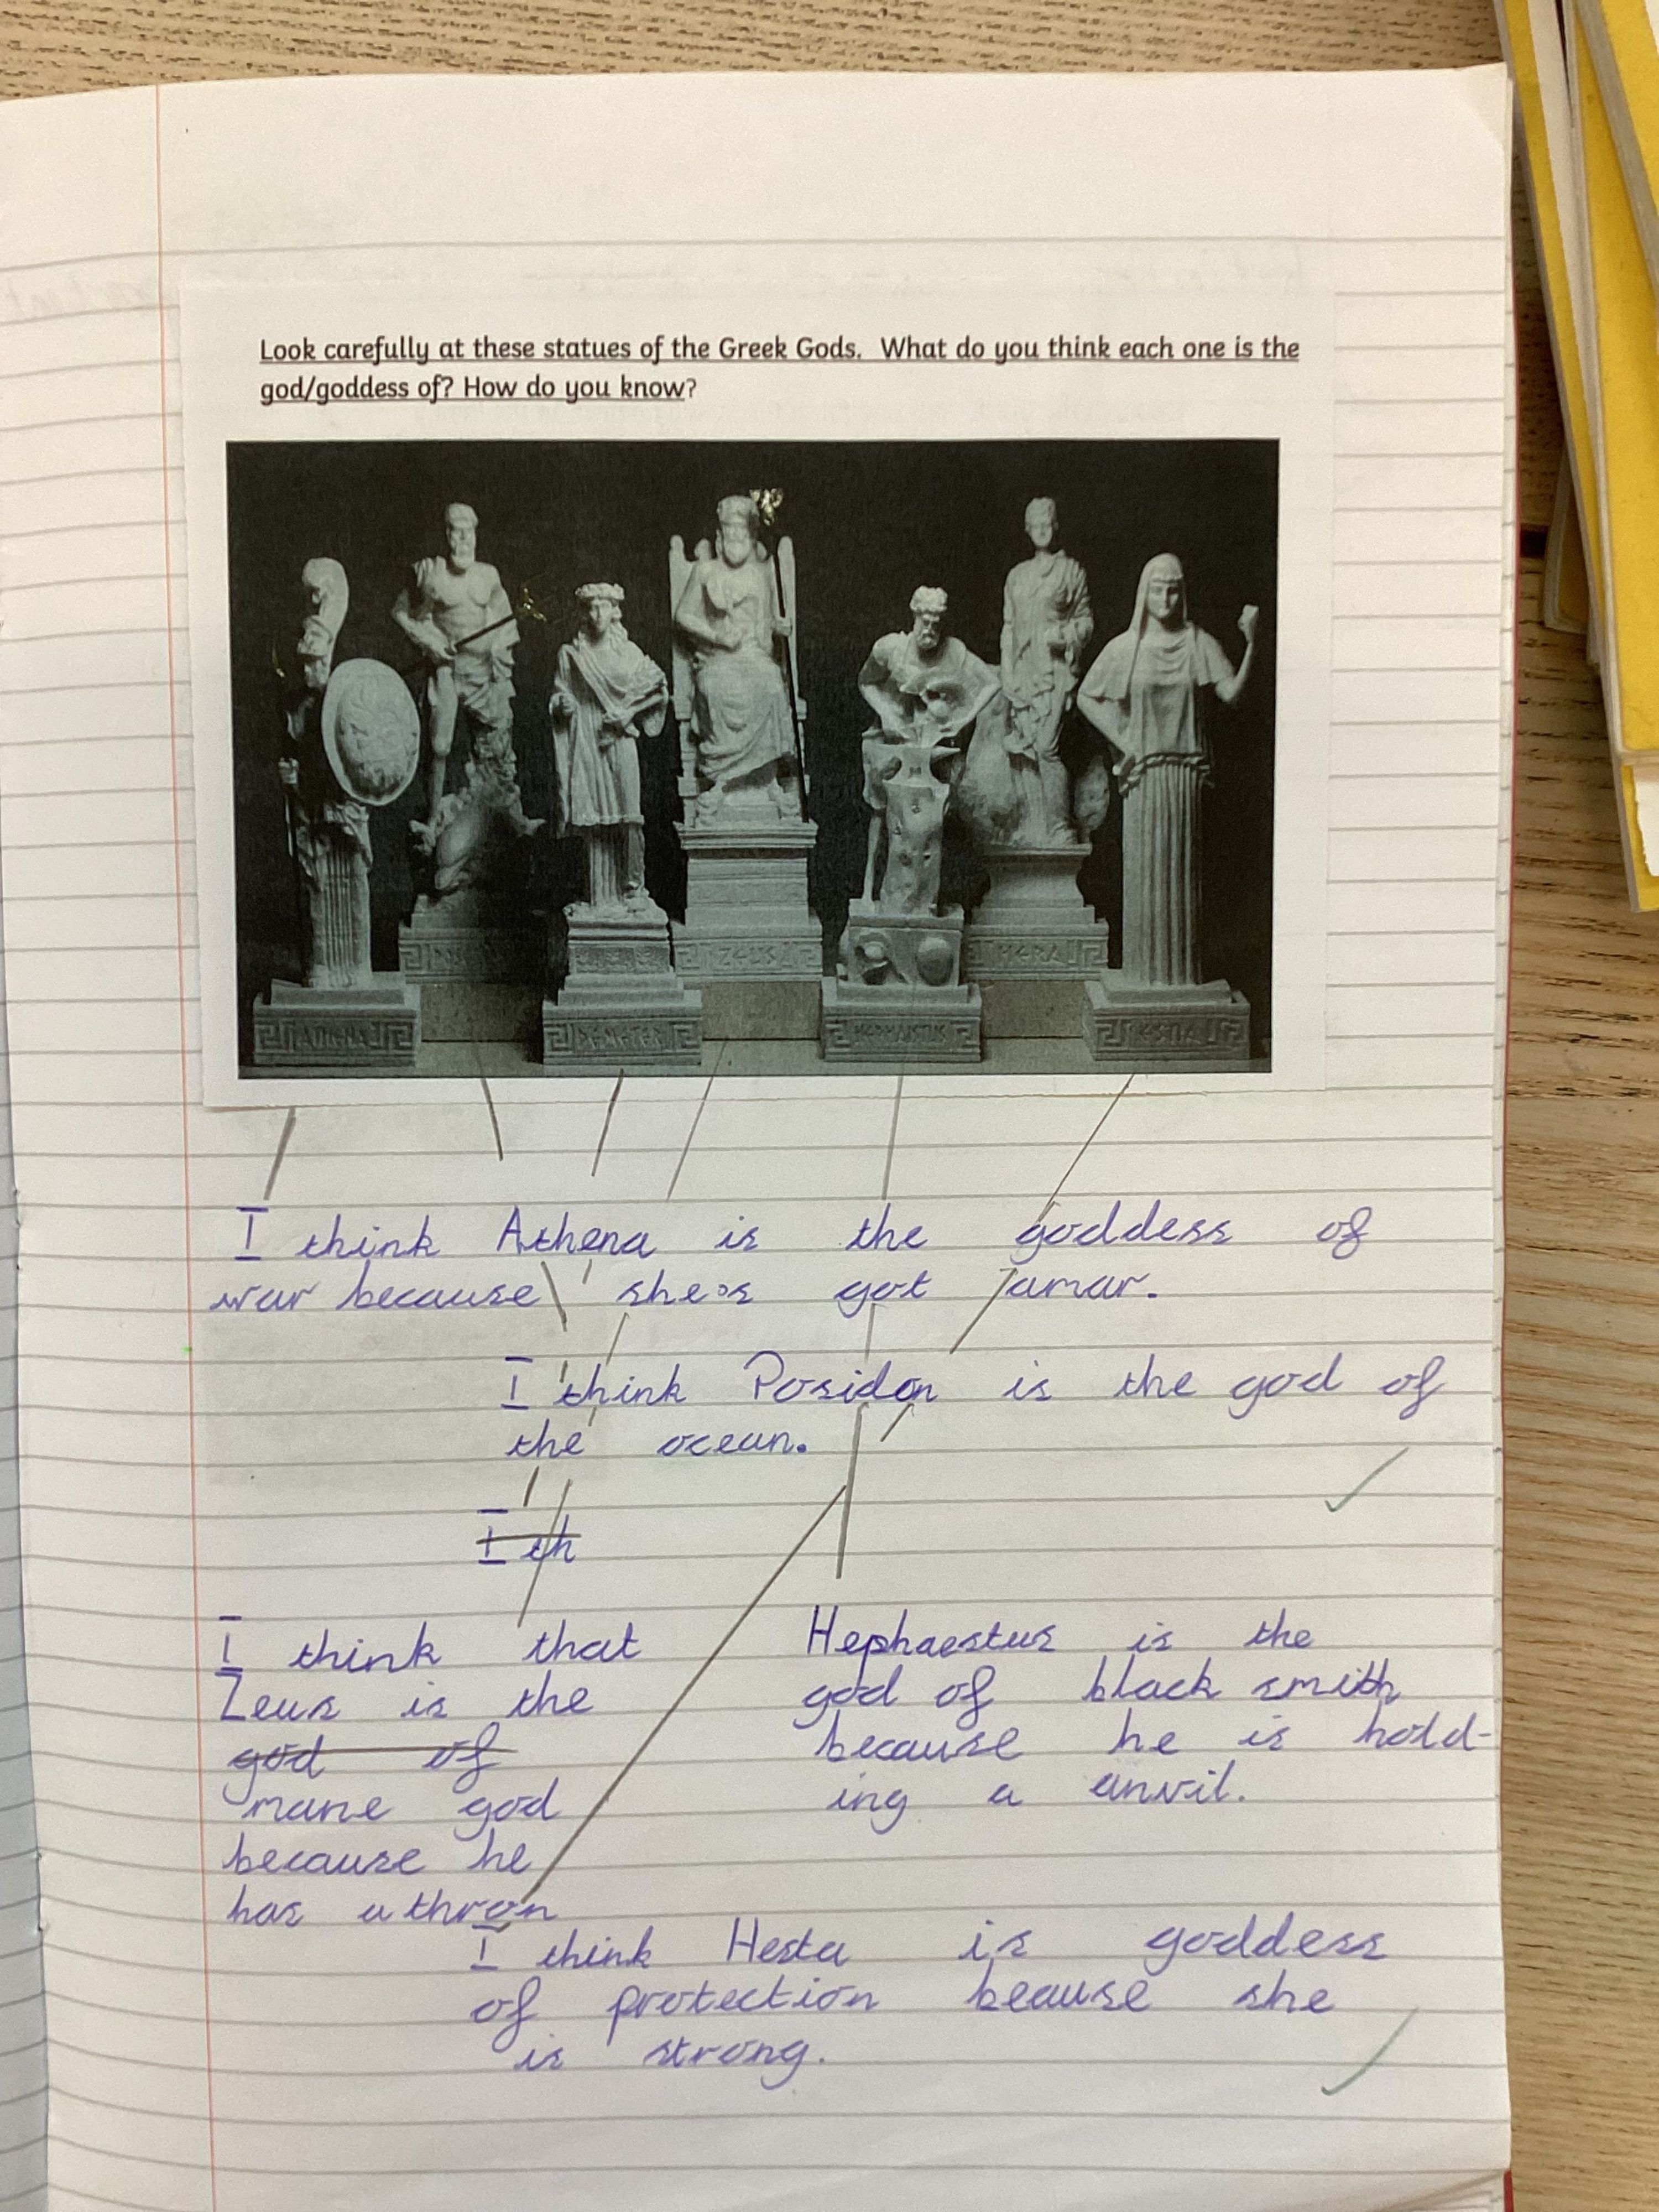 Look carefully at these statues of the Greek Gods. What do you think each one is the
god/goddess of? How do you know?
ZEUS
HERA
ATHENA
DEMETER
HEPHAISTUS
HESTIA
I think Athena is the goddess of
war because she's got amar.
I think Posidon is the god of
the ocean.
I th
I think that
Zeus is the
god of
mane god
because he
has a thron
Hephaestus is the
god of black smith
because he is hold-
ing a anvil.
I think Hesta is goddess
of protection beause she
is strong.